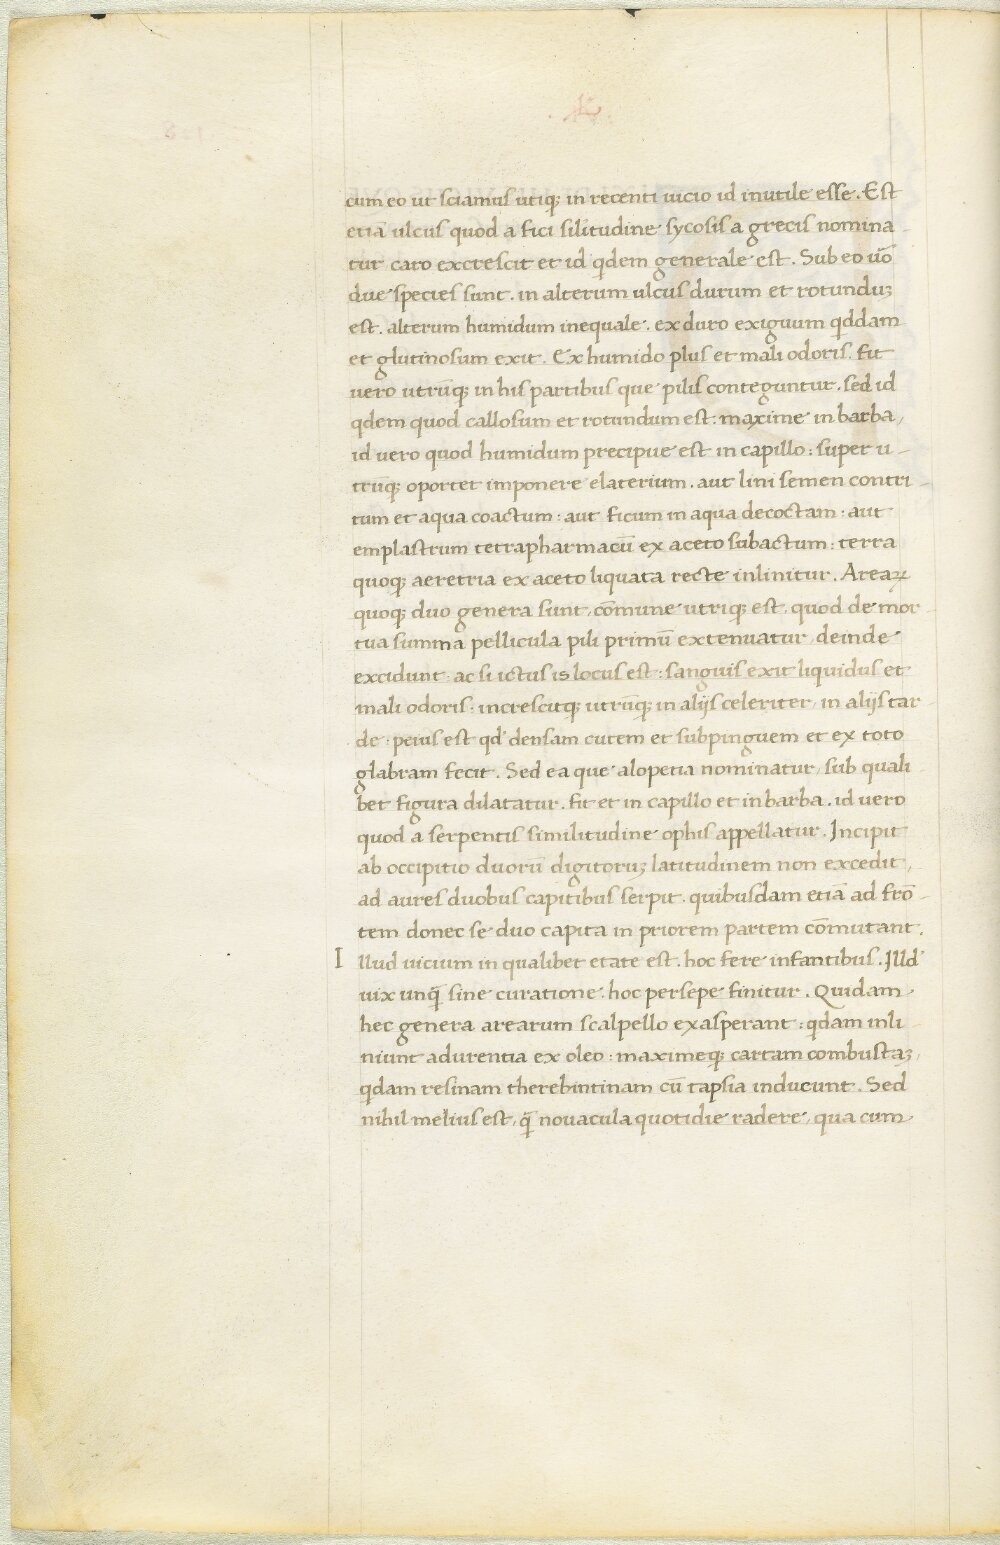 cum eo ut sciamus utiqꝫ in recenti uicio id inutile esse. Est
etiā ulcus quod a fici sil̄itudine sycosis a grecis nomina
tur caro excrescit et id qdem generale est. Sub eo uō
due species sunt. in alterum ulcus durum et rotunduꝫ
est. alterum humidum inequale. ex duro exiguum qddam
et glutinosum exit. Ex humido plus et mali odoris. fit
uero utrūqꝫ in his partibus que pilis conteguntur. sed id
qdem quod callosum et rotundum est: maxime in barba,
id uero quod humidum precipue est in capillo: super u-
trūqꝫ oportet imponere elaterium. aut lini semen contri-
tum et aqua coactum: aut ficum in aqua decoctam: aut
emplastrum tetrapharmacū ex aceto subactum: terra
quoqꝫ aeretria ex aceto liquata recte inlinitur. Areaꝝ
quoqꝫ duo genera sunt, cōmune utriqꝫ est, quod de mor-
tua summa pellicula pili primū extenuatur, deinde
excidunt: ac si ictus is locus est: sanguis exit liquidus et
mali odoris: increscitqꝫ utrūqꝫ in alijs celeriter, in alijs tar-
de: peius est qd densam cutem et subpinguem et ex toto
glabram fecit. Sed ea que alopetia nominatur, sub quali
bet figura dilatatur. fit et in capillo et in barba. id uero
quod a serpentis similitudine ophis appellatur. Incipit
ab occipitio duorū digitoruꝫ latitudinem non excedit,
ad aures duobus capitibus serpit. quibusdam etiā ad frō-
tem donec se duo capita in priorem partem cōmutant.
I llud uicium in qualibet etate est. hoc fere infantibus. Illd
uix unq̄ sine curatione. hoc persepe finitur. Quidam
hec genera arearum scalpello exasperant: qdam inli-
niunt adurentia ex oleo: maximeqꝫ cartam combustaꝫ,
qdam resinam therebintinam cū tapsia inducunt. Sed
nihil melius est, q̄ nouacula quotidie radere, qua cum